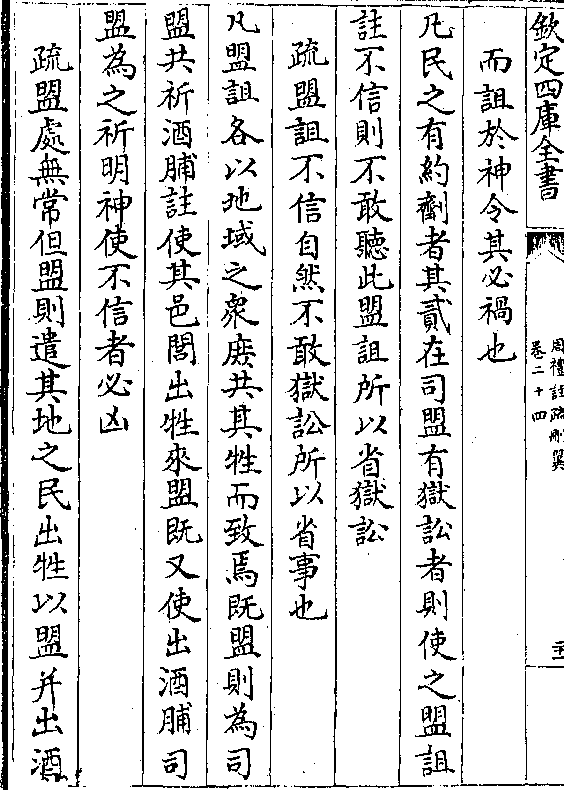 欽定四庫全書
周禮註疏刪翼
卷二十四
而詛於神令其必禍也
凡民之有約劑者其貳在司盟有獄訟者則使之盟詛
註不信則不敢聽此盟詛所以省獄訟
疏盟詛不信自然不敢獄訟所以省事也
凡盟詛各以地域之衆庶共其牲而致焉既盟則為司
盟共祈酒脯註使其邑閭出牲來盟既又使出酒脯司
盟為之祈明神使不信者必凶
疏盟處無常但盟則遣其地之民出牲以盟并出酒